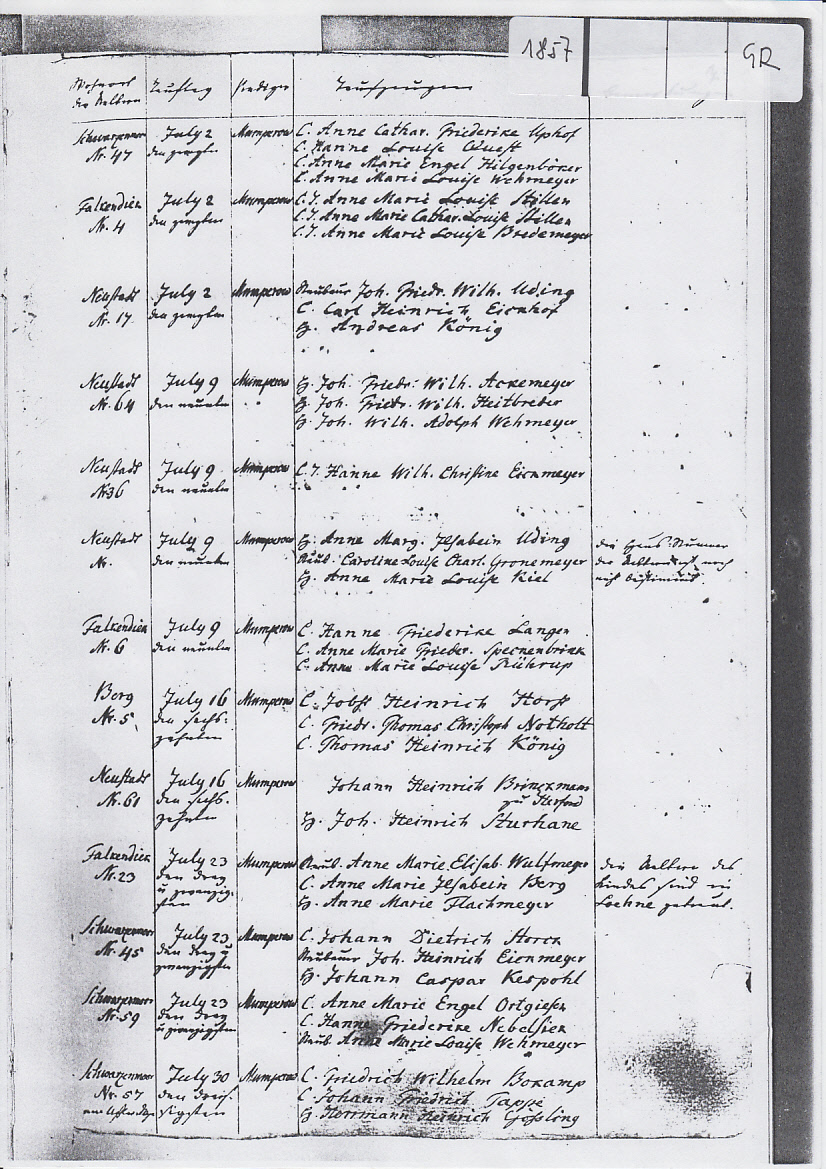 1857 GR
Wohnort der Aeltern Tauftag Prediger Taufzeugen
Schwarzenmoor July 2 Mumperow C. Anne Cathar. Friederike Uphof
Nr. 47 den zweyten C. Hanne Louise Quest
C. Anne Marie Engel Hilgenböker
C. Anne Marie Louise Wehmeyer
Falkendiek July 2 Mumperow C. J. Anne Marie Louise Stillen
Nr. 4 den zweyten C. J. Anne Marie Cathar. Louise Stillen
C. J. Anne Marie Louise Bredemeyer
Neustadt July 2 Mumperow Neubauer Joh. Friedr. Wilh. Uding
Nr. 17 den zweyten C. Carl Heinrich Eickhof
H. Andreas König
Neustadt July 9 Mumperow H. Joh. Friedr. Wilh. Ackemeyer
Nr. 64 den neunten H. Joh. Friedr. Wilh. Heitbreder
H. Joh. Wilh. Adolph Wehmeyer
Neustadt July 9 Mumperow C. J. Hanne Wilh. Christine Eickmeyer
Nr 36 den neunten
Neustadt July 9 Mumperow H. Anne Marg. Ilsabein Uding die Haus-Nummer
Nr. den neunten Neub. Caroline Louise Charl. Gronemeyer der Aeltern ist noch
H. Anne Marie Louise Kiel nicht bestimmt.
Falkendiek July 9 Mumperow C. Hanne Friederike Langen
Nr. 6 den neunten C. Anne Marie Frieder. Speckenbrink
C. Anne Marie Louise Rührup
Berg July 16 Mumperow C. Jobst Heinrich Horst
Nr. 5 den sechs- C. Friedr. Thomas Christoph Notholt
zehnten C. Thomas Heinrich König
Neustadt July 16 Mumperow Johann Heinrich Brinckmann
Nr. 61 den sechs- zu Herford
zehnten H. Joh. Heinrich Sturhane
Falkendiek July 23 Mumperow Neub. Anne Marie Elisab. Wulfmeyer die Aeltern des
Nr. 23 den drey C. Anne Marie Ilsabein Berg Kindes sind in
u zwanzig- H. Anne Marie Flachmeyer Loehne getraut.
sten
Schwarzenmoor July 23 Mumperow C. Johann Dietrich Storck
Nr. 45 den drey u Neubauer Joh. Heinrich Eickmeyer
zwanzigsten H. Johann Caspar Kespohl
Schwarzenmoor July 23 Mumperow C. Anne Marie Engel Ortgiesen
Nr. 59 den drey C. Hanne Friederike Nebelsiek
u zwanzigsten Neub. Anne Marie Louise Wehmeyer
Schwarzenmoor July 30 Mumperow C. Friedrich Wilhelm Bokamp
Nr. 57 den dreis- C. Johann Friedrich Tappe
sigsten H. Herrmann Heinrich Gößling